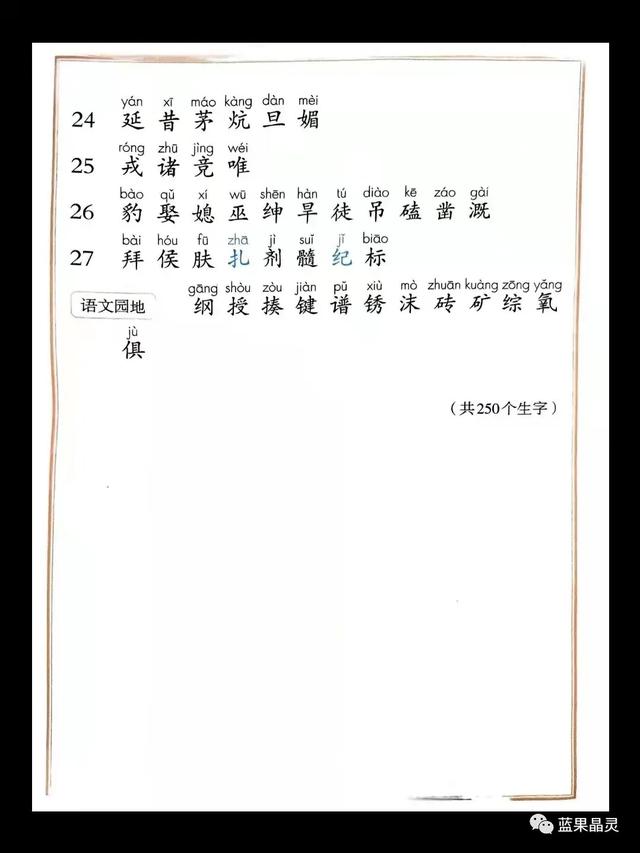 yán xī máo kàng dàn mèi
24 延 昔 茅 炕 旦 媚
róng zhū jìng wéi
25 戎 诸 竞 唯
bào qǔ xí wū shēn hàn tú diào kē záo gài
26 豹 娶 媳 巫 绅 旱 徒 吊 磕 凿 溉
bài hóu fū zhā jì suǐ jǐ biāo
27 拜 侯 肤 扎 剂 髓 纪 标
gāng shòu zòu jiàn pǔ xiù mò zhuān kuàng zōng yǎng
语文园地 纲 授 揍 键 谱 锈 沫 砖 矿 综 氧
jù
俱
（共250个生字）
蓝果晶灵